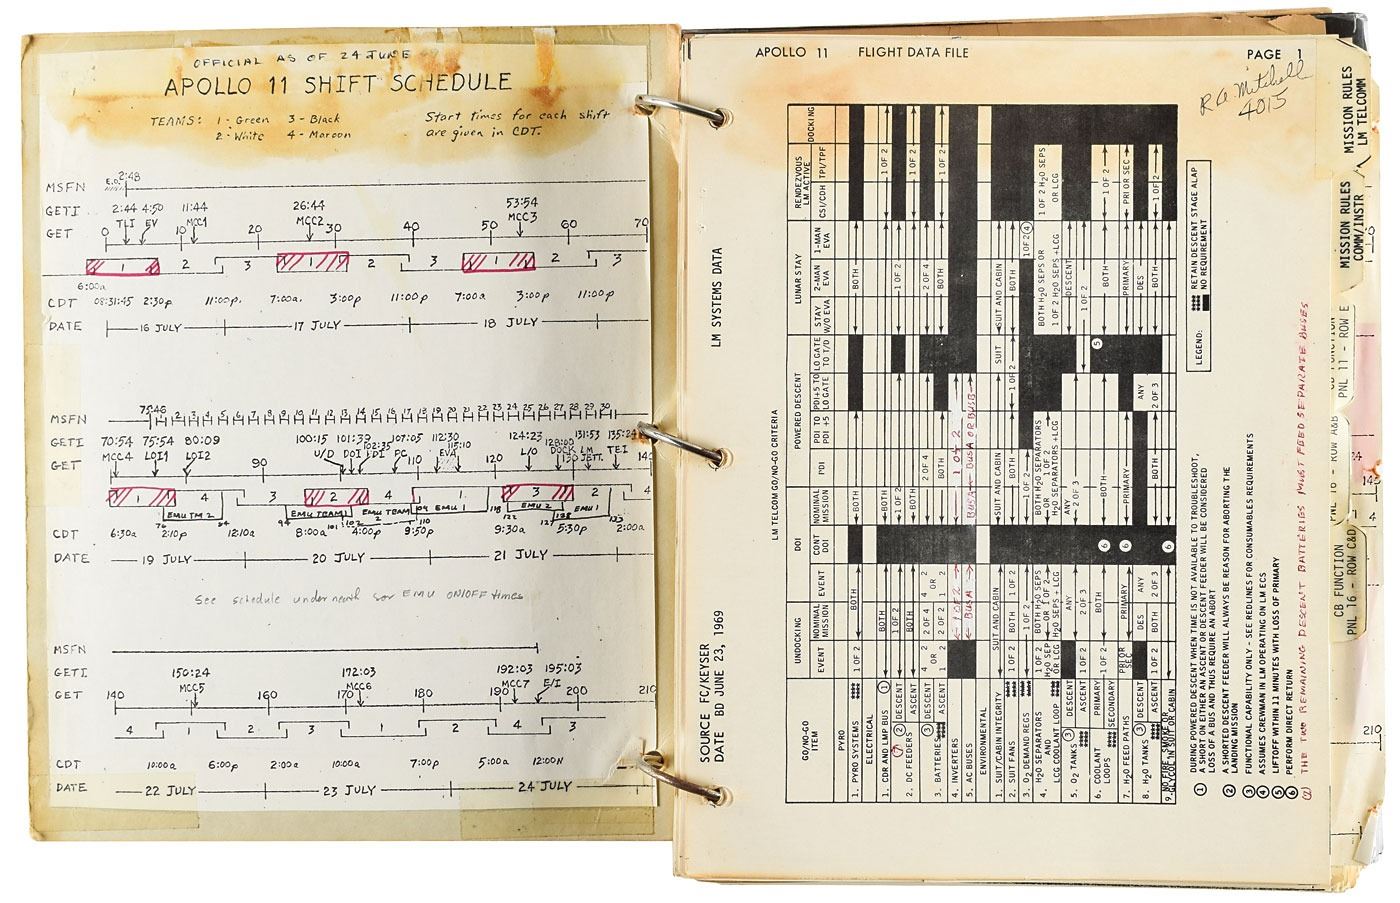 OFFICIAL AS OF 24 JUNE
APOLLO 11 SHIFT SCHEDULE
TEAMS: 1 - Green 3 - Black
2 - White 4 - Maroon
Start times for each shift
are given in CDT.
MSFN 2:48
GETI 2:44 4:50 11:44 26:44 53:54
TLI EV MCC1 MCC2 MCC3
GET 0 10 20 30 40 50 60 70
1 2 3 1 2 3 1 2 3
6:00a
CDT 08:31:45 2:30p 11:00p. 7:00a. 3:00p 11:00p 7:00a 3:00p 11:00p
DATE 16 JULY 17 JULY 18 JULY
MSFN 75:46 1 2 3 4 5 6 7 8 9 10 11 12 13 14 15 16 17 18 19 20 21 22 23 24 25 26 27 28 29 30
GETI 70:54 75:54 80:09 100:15 101:39 102:35 107:05 112:30 115:10 124:23 128:00 131:53
MCC4 LOI1 LOI2 U/D DOI PDI FC EVA L/O DOCK LM JETT. TEI
GET 90 110 120 130 140
1 4 3 2 4 1 3 2 4
EMU TM 2 EMU TEAM 1 EMU TEAM 2 EMU 1 EMU 2 EMU 1
CDT 6:30a 2:10p 12:10a 8:00a 4:00p 9:50p 9:30a 5:30p 2:00a
DATE 19 JULY 20 JULY 21 JULY
See schedule underneath for EMU ON/OFF times
MSFN
GETI 150:24 172:03 192:03 195:03
MCC5 MCC6 MCC7 E/I
GET 140 160 170 180 190 200 210
4 1 2 3 1 2 4 3
CDT 10:00a 6:00p 2:00a 10:00a 7:00p 5:00a 12:00N
DATE 22 JULY 23 JULY 24 JULY
APOLLO 11 FLIGHT DATA FILE PAGE 1
R A Mitchell
4015
LM SYSTEMS DATA
SOURCE FC/KEYSER
DATE BD JUNE 23, 1969
LM TELCOM GO/NO-GO CRITERIA
GO/NO-GO
ITEM
UNDOCKING
EVENT
NOMINAL
MISSION
EVENT
DOI
CONT
DOI
NOMINAL
MISSION
POWERED DESCENT
PDI
PDI TO
PDI +5
PDI+5 TO
LO GATE
LO GATE
TO T/D
LUNAR STAY
STAY
W/O EVA
2-MAN
EVA
1-MAN
EVA
RENDEZVOUS
LM ACTIVE
CSI/CDH
TPI/TPF
DOCKING
PYRO
1. PYRO SYSTEMS 1 OF 2 BOTH BOTH BOTH
ELECTRICAL
1. CDR AND LMP BUS ① BOTH 1 OF 2
2. DC FEEDERS ② DESCENT 1 OF 2 1 OF 2 1 OF 2
ASCENT BOTH BOTH BOTH 1 OF 2
3. BATTERIES ③ DESCENT 4 2 2 OF 4 4 2 2 OF 4 2 OF 4
OR OR
ASCENT 1 2 BOTH 1 2 BOTH BOTH 1 OF 2
4. INVERTERS 1 OF 2 1 OR 2
5. AC BUSES BUS A BUS A BUS A OR BUS B
ENVIRONMENTAL
1. SUIT/CABIN INTEGRITY SUIT AND CABIN SUIT AND CABIN SUIT SUIT AND CABIN
2. SUIT FANS 1 OF 2 BOTH 1 OF 2 BOTH 1 OF 2 BOTH
3. O2 DEMAND REGS 1 OF 2 1 OF 2 1 OF 2 ④
4. H2O SEPARATORS
AND
LCG COOLANT LOOP
BOTH H2O SEPARATORS
OR 1 OF 2
H2O SEPARATORS +LCG
BOTH H2O SEPS OR
1 OF 2 H2O SEPS +LCG
1 OF 2 H2O SEPS
OR LCG
5. O2 TANKS ③ DESCENT ANY ANY DESCENT
ASCENT 1 OF 2 2 OF 3 2 OF 3 1 OF 2
6. COOLANT
LOOPS
PRIMARY
SECONDARY
1 OF 2 BOTH ⑥ BOTH ⑤ BOTH 1 OF 2
7. H2O FEED PATHS PRI OR SEC PRIMARY ⑥ PRIMARY PRIMARY PRI OR SEC
8. H2O TANKS ③ DESCENT DES ANY ANY DES
ASCENT 1 OF 2 BOTH 2 OF 3 2 OF 3 BOTH 1 OF 2
9. NO FIRE, SMOKE OR
GLYCOL IN SUIT OR CABIN ⑥
LEGEND:
RETAIN DESCENT STAGE ALAP
NO REQUIREMENT
① DURING POWERED DESCENT WHEN TIME IS NOT AVAILABLE TO TROUBLESHOOT,
A SHORT ON EITHER AN ASCENT OR DESCENT FEEDER WILL BE CONSIDERED
LOSS OF A BUS AND THUS REQUIRE AN ABORT
② A SHORTED DESCENT FEEDER WILL ALWAYS BE REASON FOR ABORTING THE
LANDING MISSION
③ FUNCTIONAL CAPABILITY ONLY - SEE REDLINES FOR CONSUMABLES REQUIREMENTS
④ ASSUMES CREWMAN IN LM OPERATING ON LM ECS
⑤ LIFTOFF WITHIN 11 MINUTES WITH LOSS OF PRIMARY
⑥ PERFORM DIRECT RETURN
⑦ THE TWO REMAINING DESCENT BATTERIES MUST FEED SEPARATE BUSES
MISSION RULES
LM TELCOMM
MISSION RULES
COMM/INSTR
PNL 11 - ROW E
PNL 16 - ROW A&B
CB FUNCTION
PNL 16 - ROW C&D
210